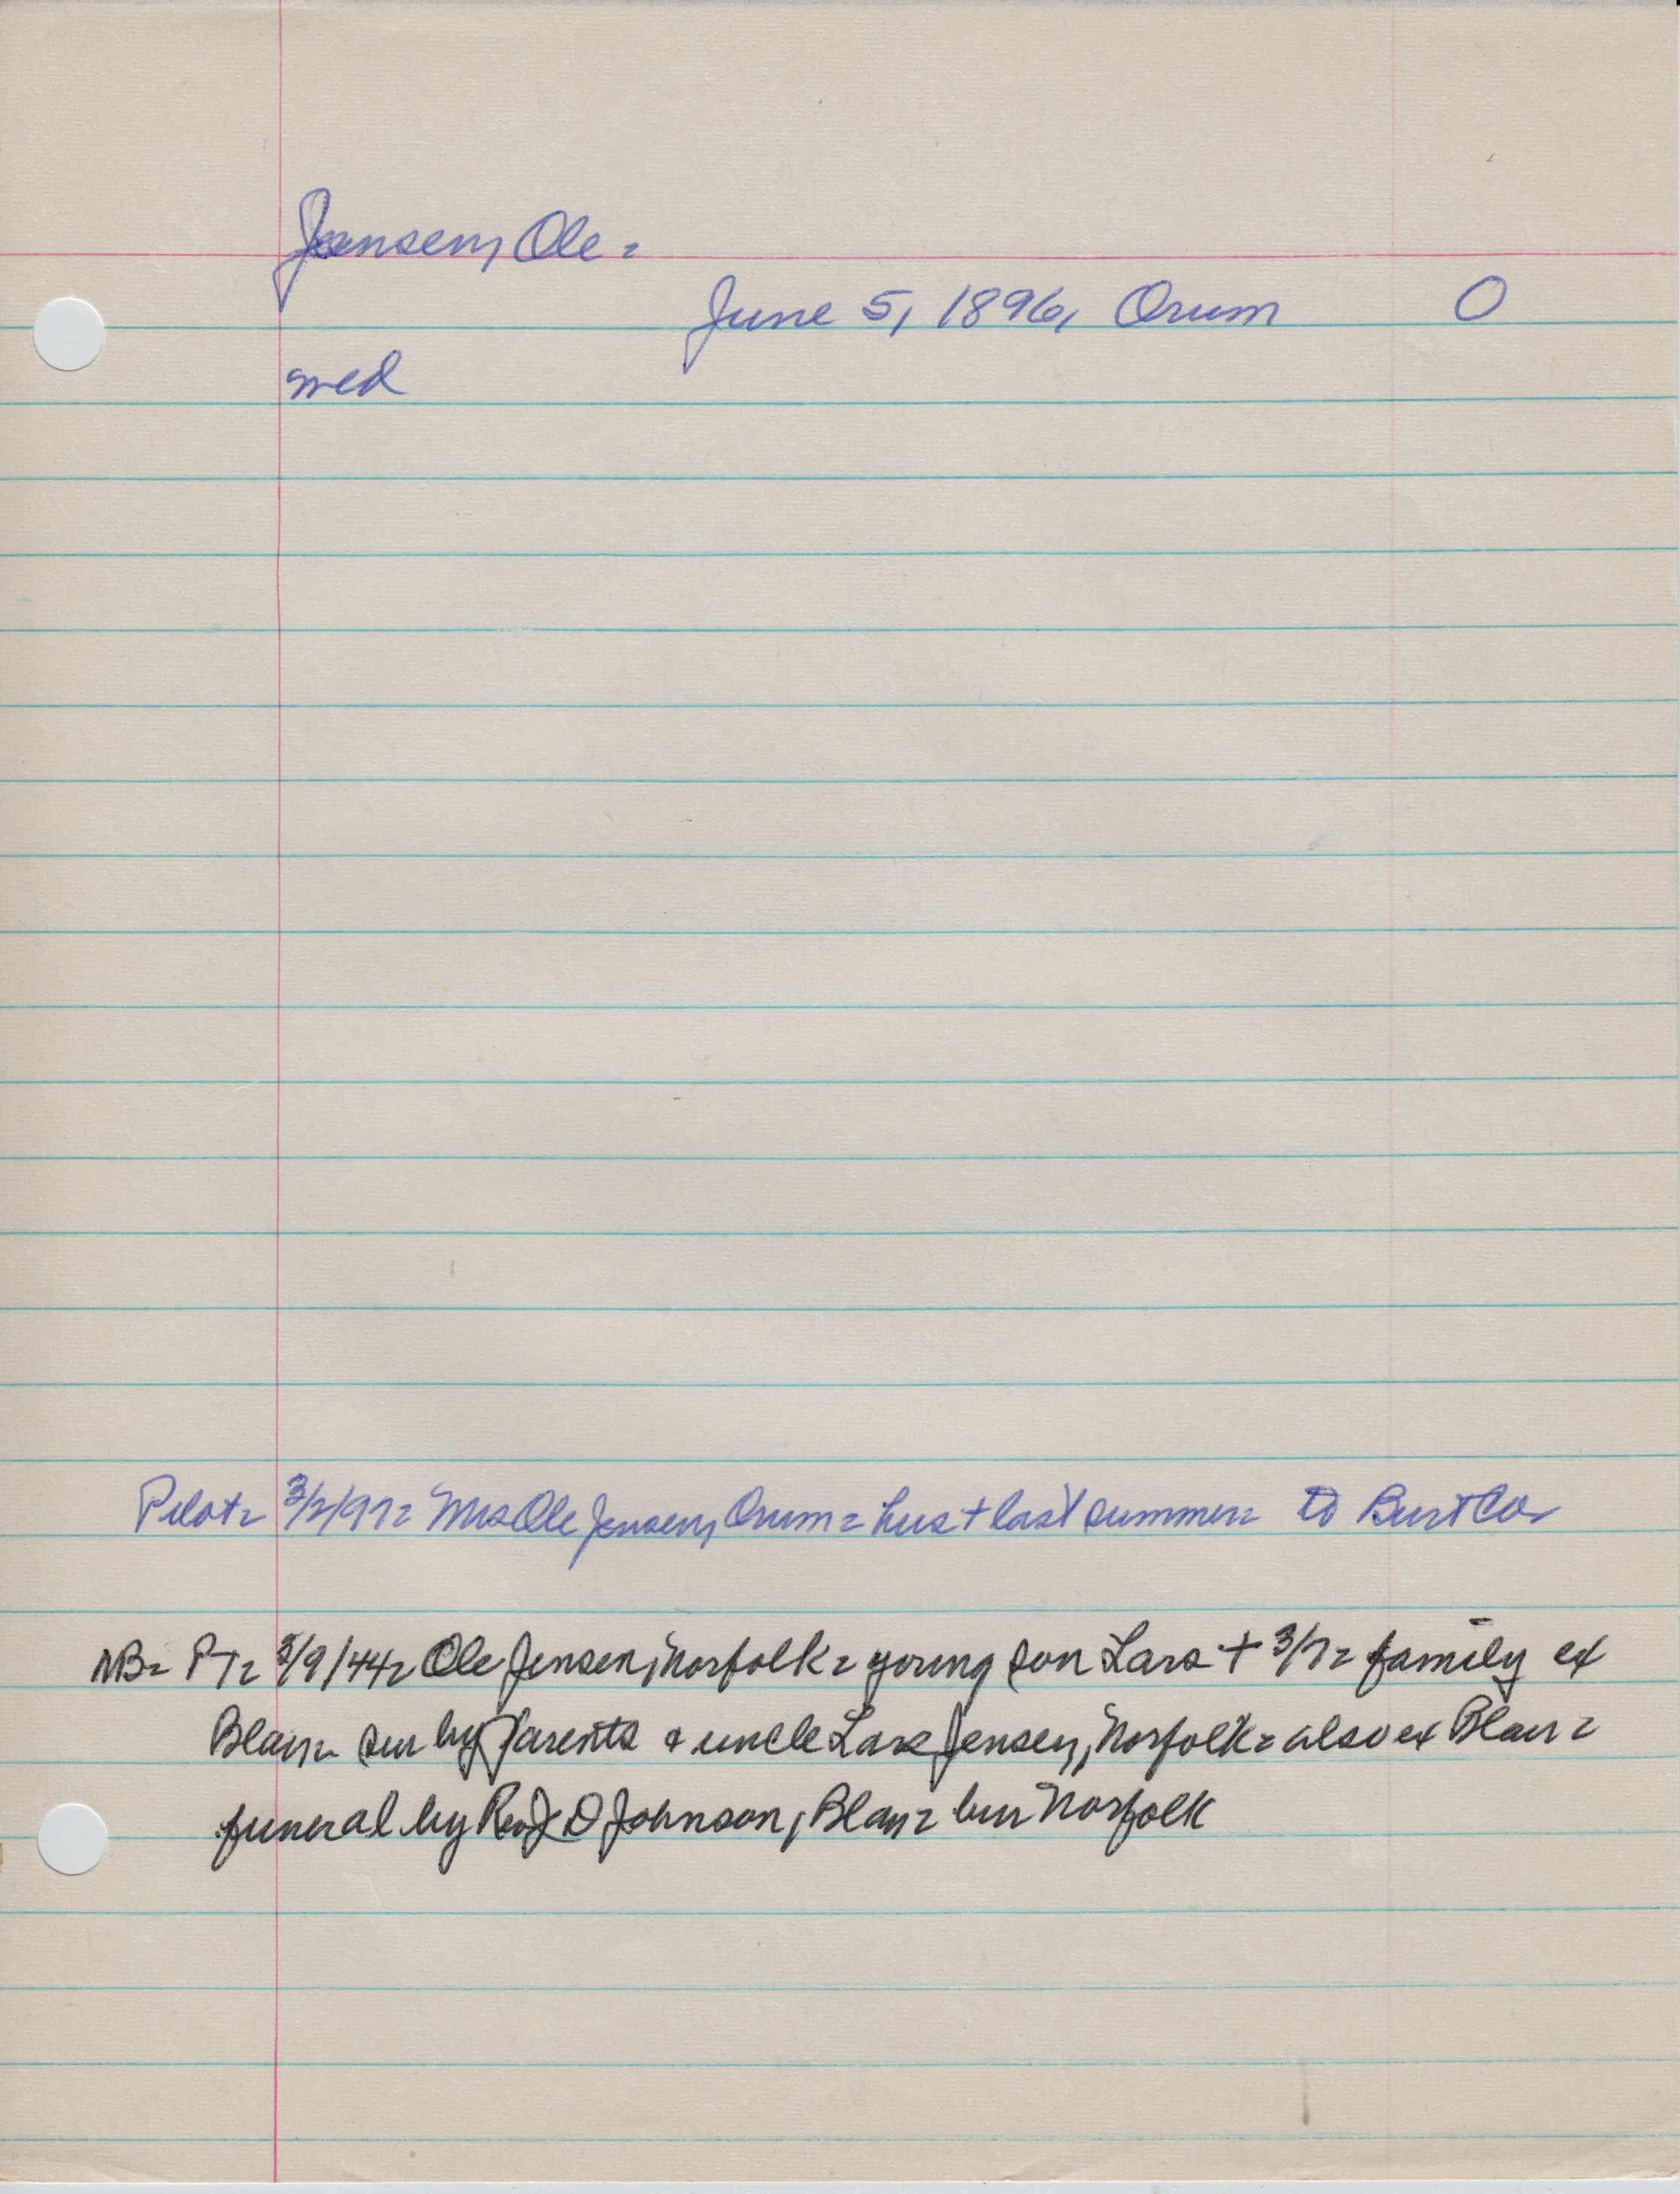 Jensen, Ole =
June 5, 1896, Orum O
wed
Pilot = 3/2/97 = Mrs Ole Jensen, Orum = hus + last summer = to Burt Co =
NB = PT = 3/9/44 = Ole Jensen, Norfolk = young son Lars + 3/7 = family ex
Blair = sur by parents & uncle Lars Jensen, Norfolk = also ex Blair =
funeral by Rev D Johnson, Blair = bur Norfolk